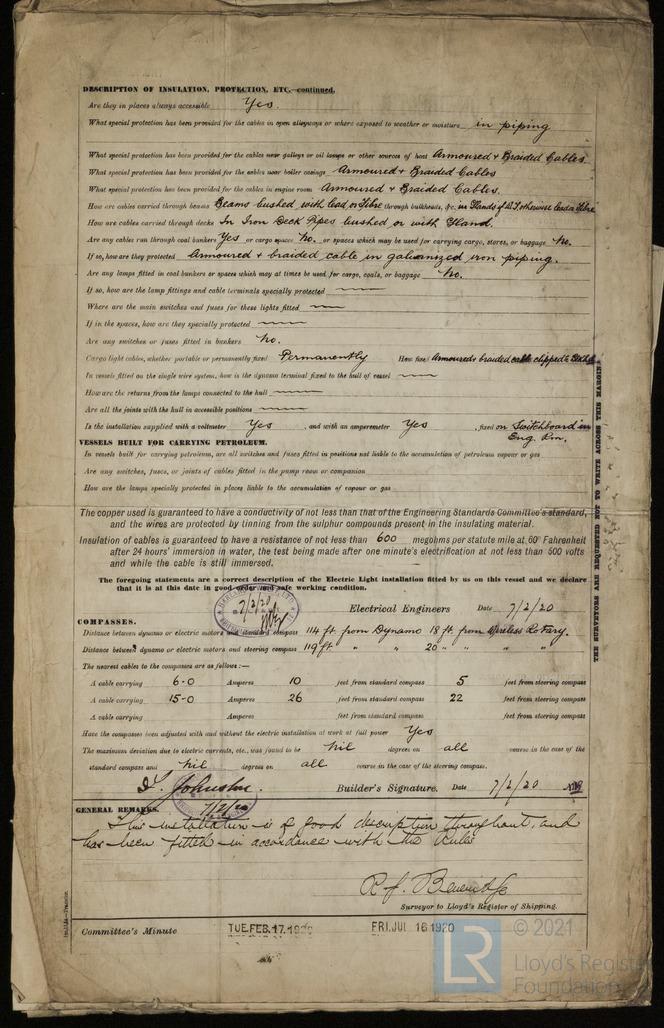 DESCRIPTION OF INSULATION, PROTECTION, ETC.—continued.
Are they in places always accessible Yes.
What special protection has been provided for the cables in open alleyways or where exposed to weather or moisture in piping
What special protection has been provided for the cables near galleys or oil lamps or other sources of heat Armoured & Braided Cables
What special protection has been provided for the cables near boiler casings Armoured & Braided Cables
What special protection has been provided for the cables in engine room Armoured & Braided Cables.
How are cables carried through beams Beams bushed with lead or Fibre through bulkheads, &c. in Glands if W.T. otherwise lead or Fibre
How are cables carried through decks In Iron Deck Pipes bushed or with Gland.
Are any cables run through coal bunkers Yes or cargo spaces No. or spaces which may be used for carrying cargo, stores, or baggage No.
If so, how are they protected Armoured & braided cable in galvanized iron piping.
Are any lamps fitted in coal bunkers or spaces which may at times be used for cargo, coals, or baggage No.
If so, how are the lamp fittings and cable terminals specially protected
Where are the main switches and fuses for these lights fitted
If in the spaces, how are they specially protected
Are any switches or fuses fitted in bunkers No.
Cargo light cables, whether portable or permanently fixed Permanently How fixed Armoured & braided cable clipped to
In vessels fitted on the single wire system, how is the dynamo terminal fixed to the hull of vessel
How are the returns from the lamps connected to the hull
Are all the joints with the hull in accessible positions
Is the installation supplied with a voltmeter Yes, and with an amperemeter Yes, fixed on Switchboard in
Eng. Rm.
VESSELS BUILT FOR CARRYING PETROLEUM.
In vessels built for carrying petroleum, are all switches and fuses fitted in positions not liable to the accumulation of petroleum vapour or gas
Are any switches, fuses, or joints of cables fitted in the pump room or companion
How are the lamps specially protected in places liable to the accumulation of vapour or gas
THE SURVEYORS ARE REQUESTED NOT TO WRITE ACROSS THIS MARGIN.
The copper used is guaranteed to have a conductivity of not less than that of the Engineering Standards Committee's standard,
and the wires are protected by tinning from the sulphur compounds present in the insulating material.
Insulation of cables is guaranteed to have a resistance of not less than 600 megohms per statute mile at 60° Fahrenheit
after 24 hours' immersion in water, the test being made after one minute's electrification at not less than 500 volts
and while the cable is still immersed.
The foregoing statements are a correct description of the Electric Light installation fitted by us on this vessel and we declare
that it is at this date in good order and safe working condition.
7/2/20
Electrical Engineers Date 7/2/20
COMPASSES.
Distance between dynamo or electric motors and standard compass 114 ft. from Dynamo 18 ft. from Wireless Rotary.
Distance between dynamo or electric motors and steering compass 119 ft. " " 20 " " " "
The nearest cables to the compasses are as follows:—
A cable carrying 6-0 Amperes 10 feet from standard compass 5 feet from steering compass
A cable carrying 15-0 Amperes 26 feet from standard compass 22 feet from steering compass
A cable carrying Amperes feet from standard compass feet from steering compass
Have the compasses been adjusted with and without the electric installation at work at full power Yes
The maximum deviation due to electric currents, etc., was found to be Nil degrees on all course in the case of the
standard compass and Nil degrees on all course in the case of the steering compass.
Johnston. Builder's Signature. Date 7/2/20
7/2/20
GENERAL REMARKS.
This installation is of good description throughout, and
has been fitted in accordance with the Rules
R. J. Beveridge
Surveyor to Lloyd's Register of Shipping.
Committee's Minute TUE. FEB. 17. 1920 FRI. JUL 16 1920
LR © 2021
Lloyd's Register
Foundation